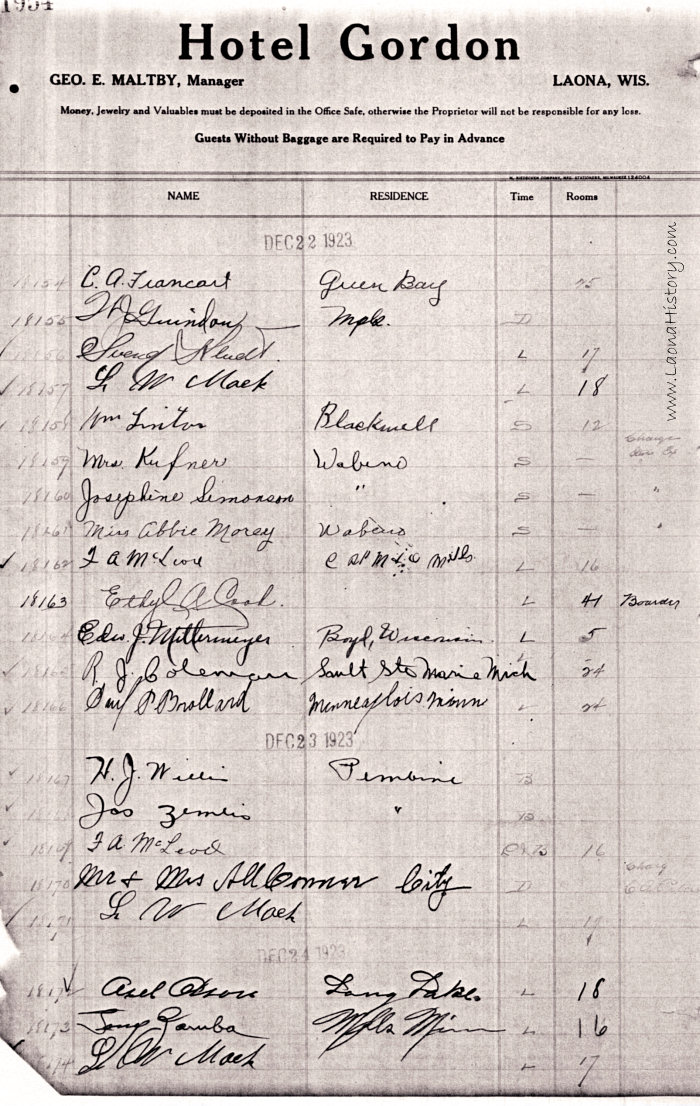 Hotel Gordon
GEO. E. MALTBY, Manager LAONA, WIS.
Money, Jewelry and Valuables must be deposited in the Office Safe, otherwise the Proprietor will not be responsible for any loss.
Guests Without Baggage are Required to Pay in Advance
NAME RESIDENCE Time Rooms
DEC 22 1923
18154 C. A. Francart Green Bay 25
18155 Mpls. D
18156 L 17
18157 L W Mack L 18
18158 Wm Linton Blackwell S 12
18159 Mrs. Kufner Wabeno S Charge
18160 Josephine Simonson " S — "
18161 Miss Abbie Morey Wabeno S — "
18162 F A McLeod L 16
18163 Ethyl A Cook. L 41 Boarder
18164 Edw. J. Mittermeyer Boyd, Wisconsin. L 5
18165 R. J. Coleman Sault Ste Marie Mich 24
18166 Paul P Brollard Minneaplois Minn L 24
DEC 23 1923
18167 H. J. Willis Pembine B
Jos Zemlis " B
18169 F A McLeod 16
18170 Mr & Mrs A H Connor City D
18171 L W Mack L 17
DEC 24 1923
18172 Axel Olson Long Lake. L 18
18173 Mpls Minn L 16
L W Mack L 17
www.LaonaHistory.com